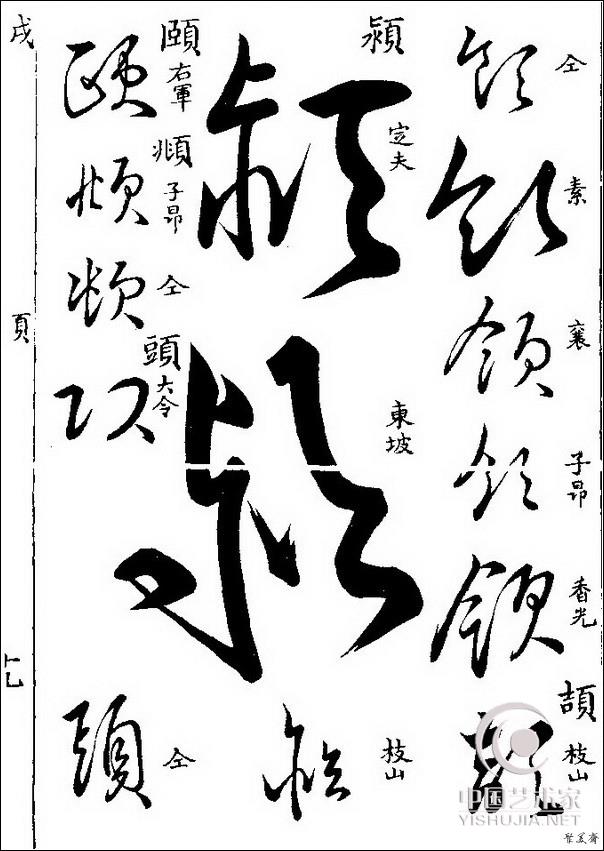 領 仝
領 素
領 襄
領 子昂
領 香光
頡 枝山
潁 定夫
東坡
枝山
頤 右軍
頫 子昂
仝
頭 大令
仝
戌
頁
中国艺术家
YISHUJIA.NET